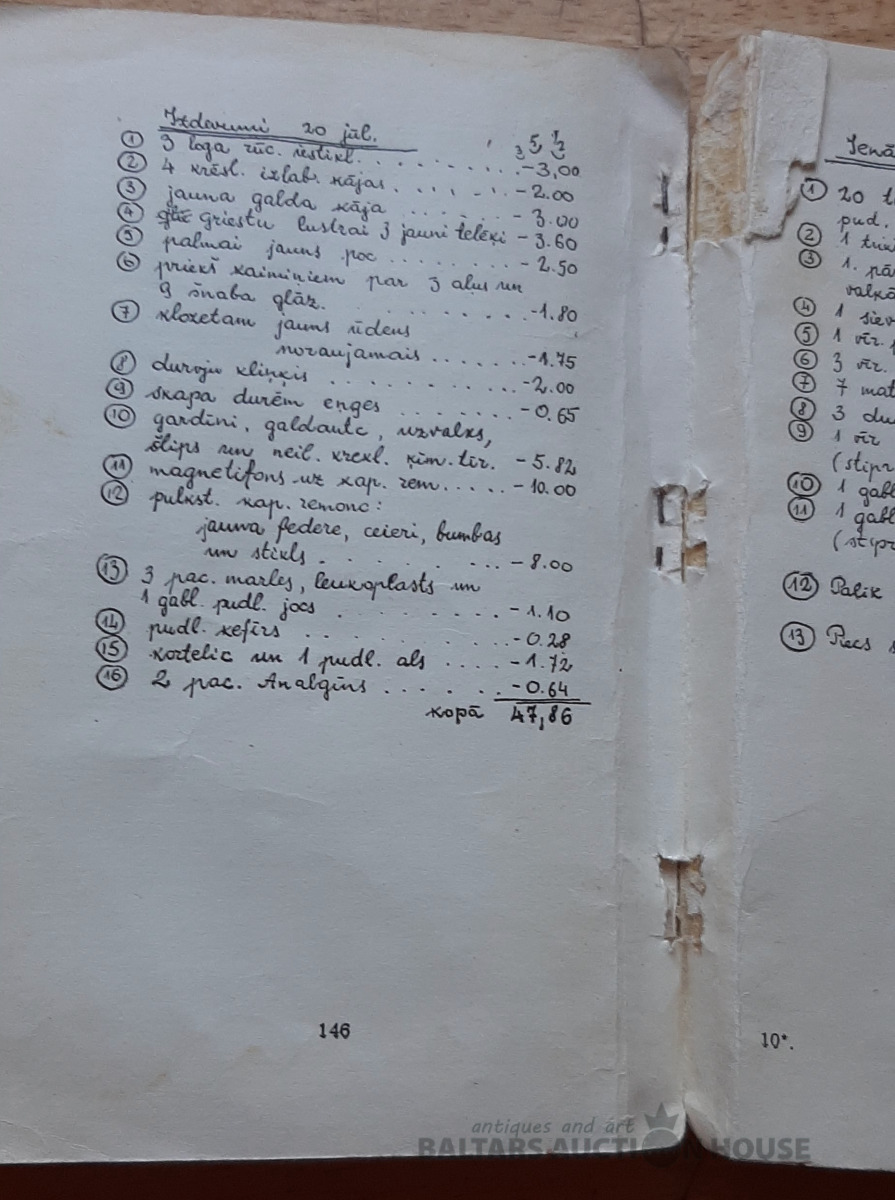 Izdarumi 20 jūl.
3 5 1/2
① 3 loga rūc. iestikl. . . . . . . . . . -3,00
② 4 krēsl. izlab. kājas . . . . . . . -2.00
③ jauna galda kāja . . . . . . . - 3.00
④ griestu lustrai 3 jauni telēķi - 3.60
⑤ palmai jauns poc . . . . . . . . - 2.50
⑥ priekš kaimiņiem par 3 aļus un
9 šnaba glāz. -1.80
⑦ klozetam jauns ūdens
noraujamais . . . . . . -1.75
⑧ durvju kliņķis . . . . . . . . . . -2.00
⑨ skapa durēm eņģes . . . . . . . - 0.65
⑩ gardīni, galdautc, uzvalks,
šlips un neil. krekl. ķīm. tīr. - 5.82
⑪ magnetifons uz kap. rem. . . . . - 10.00
⑫ pulkst. kap. remonc:
jauna federe, ceieri, bumbas
un stikls . . . . . . . - 8.00
⑬ 3 pac. marles, leukoplasts un
1 gabl. pudl. jocs . . . . . . . . - 1.10
⑭ pudl. kefīrs . . . . . . . . . - 0.28
⑮ kortelic un 1 pudl. als . . . . - 1.72
⑯ 2 pac. Analgīns . . . . . . . - 0.64
kopā 47,86
146
① 20
pud.
② 1
③ 1.
④ 1
⑤ 1 vīr.
⑥ 3 vīr.
⑦ 7
⑧ 3
⑨ 1 vīr
⑩ 1
⑪ 1
⑫ Palik
⑬ Pecs
10*.
antiques and art
BALTARS AUCTION HOUSE